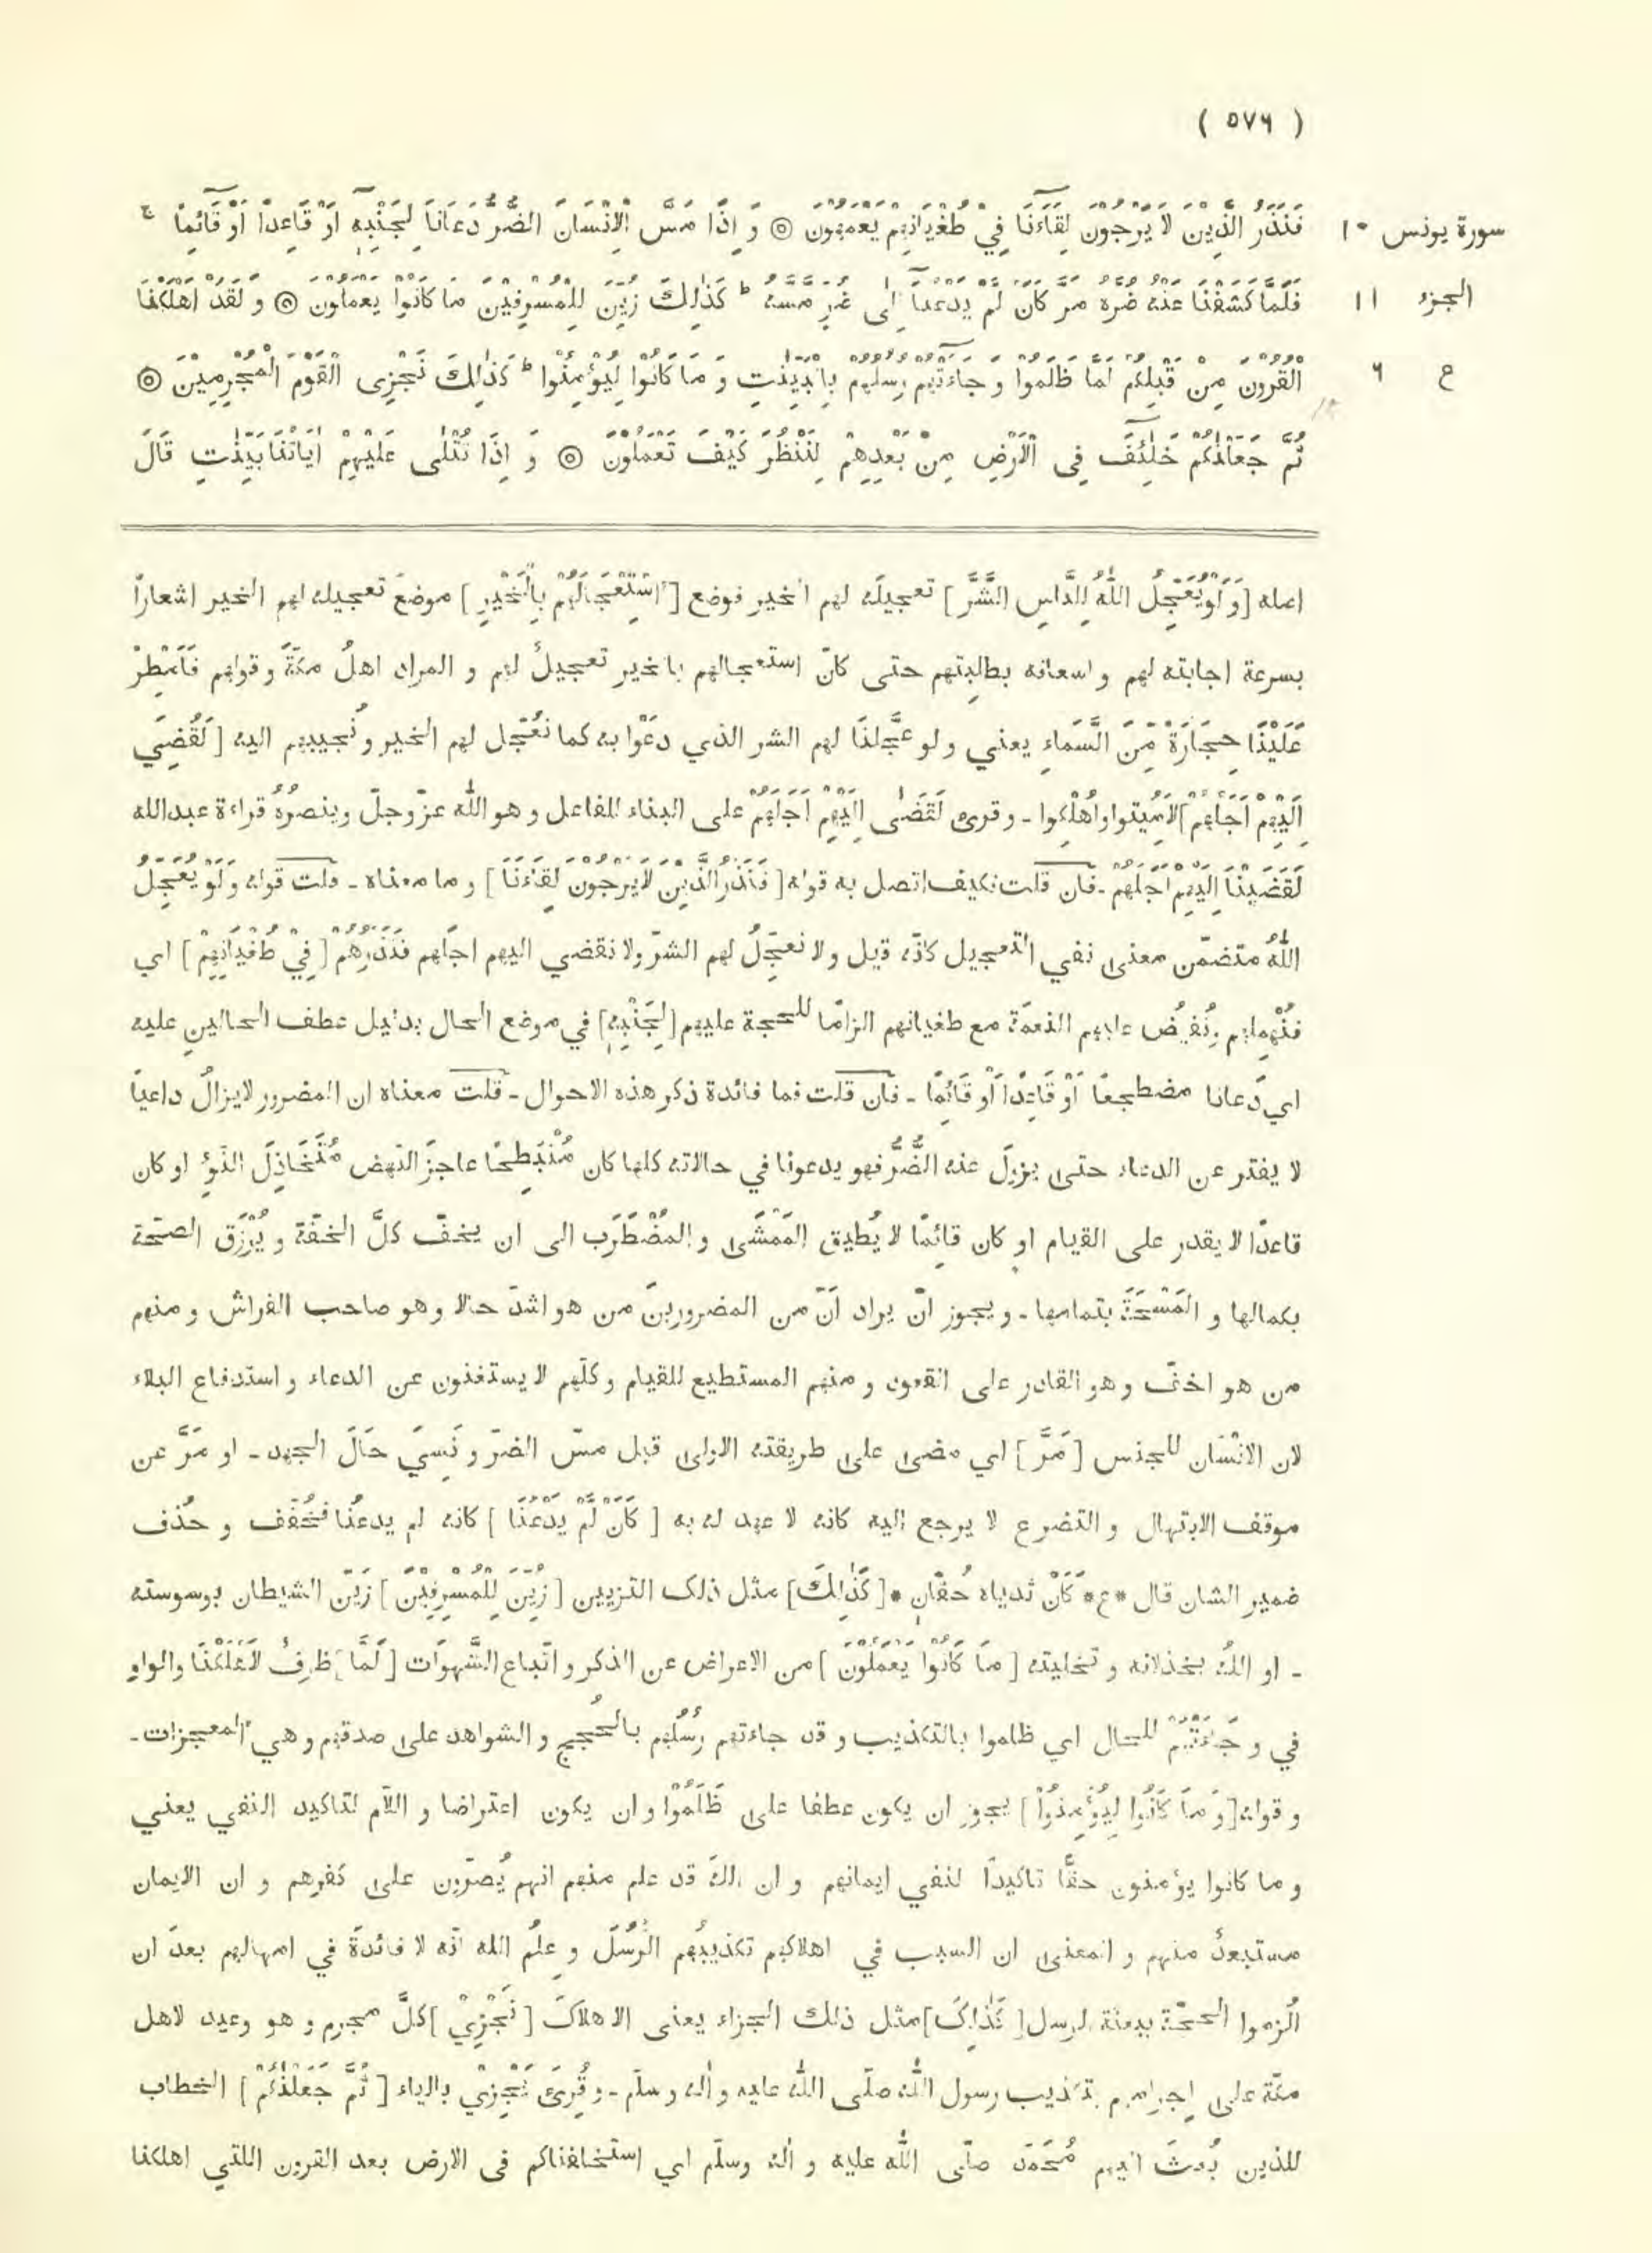 ( ٥٧٦ )
سورة يونس ١٠
الجزء ١١
ع ٦
فَنَذَرُ الَّذِيْنَ لَا يَرْجُوْنَ لِقَآءَنَا فِيْ طُغْيَانِهِمْ يَعْمَهُوْنَ ۞ وَ اِذَا مَسَّ الْاِنْسَانَ الضُّرُّ دَعَانَا لِجَنْبِهٖٓ اَوْ قَاعِدًا اَوْ قَآئِمًا ج
فَلَمَّا كَشَفْنَا عَنْهُ ضُرَّهُ مَرَّ كَاَنْ لَّمْ يَدْعُنَآ اِلٰى ضُرٍّ مَّسَّهُ ط كَذٰلِكَ زُيِّنَ لِلْمُسْرِفِيْنَ مَا كَانُوْا يَعْمَلُوْنَ ۞ وَ لَقَدْ اَهْلَكْنَا
الْقُرُوْنَ مِنْ قَبْلِكُمْ لَمَّا ظَلَمُوْا وَ جَآءَتْهُمْ رُسُلُهُمْ بِالْبَيِّنٰتِ وَ مَا كَانُوْا لِيُؤْمِنُوْا ط كَذٰلِكَ نَجْزِى الْقَوْمَ الْمُجْرِمِيْنَ ۞
ثُمَّ جَعَلْنٰكُمْ خَلٰٓئِفَ فِى الْاَرْضِ مِنْ بَعْدِهِمْ لِنَنْظُرَ كَيْفَ تَعْمَلُوْنَ ۞ وَ اِذَا تُتْلٰى عَلَيْهِمْ اٰيَاتُنَا بَيِّنٰتٍ قَالَ
اصله [وَلَوْ يُعَجِّلُ اللّٰهُ لِلنَّاسِ الشَّرَّ] تعجيلَه لهم الخير فوضع [اسْتِعْجَالَهُمْ بِالْخَيْرِ] موضعَ تعجيله لهم الخير اشعاراً
بسرعة اجابته لهم و اسعافه بطلبتهم حتى كانّ استعجالهم بالخير تعجيلٌ لهم و المراد اهلُ مكةَ و قولهم فَاَمْطِرْ
عَلَيْنَا حِجَارَةً مِّنَ السَّمَاءِ يعني ولو عجَّلنَا لهم الشر الذي دعَوْا به كما نُعَجّل لهم الخير و نُجيبهم اليه [لَقُضِيَ
اِلَيْهِمْ اَجَلُهُمْ] لاُمِيتوا واُهْلِكوا ـ وقرئ لَقَضٰى اِلَيْهِمْ اَجَلَهُمْ على البناء للفاعل و هو اللّٰه عزّ وجلّ وينصرُهُ قراءة عبدالله
لَقَضَيْنَا اِلَيْهِمْ اَجَلَهُمْ ـ فان قلت فكيف اتصل به قوله [فَنَذَرُ الَّذِيْنَ لَا يَرْجُوْنَ لِقَآءَنَا] و ما معناه ـ قلت قوله وَلَوْ يُعَجِّلُ
اللّٰهُ متضمّن معنى نفي التعجيل كانّه قيل ولا نعجّلُ لهم الشرّ ولا نقضي اليهم اجلهم فَنَذَرُهُمْ [فِيْ طُغْيَانِهِمْ] اي
فنُمْهِلهم ونُفيضُ عليهم النعمَة مع طغيانهم الزامًا للحجة عليهم [لِجَنْبِهِ] في موضع الحال بدليل عطف الحالين عليه
اي دَعانا مضطجعًا اَوْ قَاعِدًا اَوْ قَائِمًا ـ فان قلت فما فائدة ذكر هذه الاحوال ـ قلت معناه ان المضرور لايزالُ داعيًا
لا يفتر عن الدعاء حتى يزولَ عنه الضُّرُّ فهو يدعونا في حالاته كلها كان مُنْبَطِحًا عاجزَ النَّهض مُتَخَاذِلَ النَّوْءِ او كان
قاعدًا لا يقدر على القيام او كان قائِمًا لا يُطيق المَمْشَى و المُضْطَرَب الى ان يخفّ كلَّ الخفّة و يُرْزَق الصحّة
بكمالها و المَسْحَةَ بتمامها ـ ويجوز انْ يراد اَنّ من المضرورينَ من هو اشدّ حالا وهو صاحب الفراش و منهم
من هو اخفّ و هو القادر على القعود و منهم المستطيع للقيام و كلّهم لا يستغنون عن الدعاء و استدفاع البلاء
لان الانْسَان للجنس [مَرَّ] اي مضى على طريقته الاولى قبل مسّ الضرّ و نَسِيَ حَالَ الجهد ـ او مَرَّ عن
موقف الابتهال و التضرع لا يرجع اليه كانه لا عهد له به [كَاَنْ لَّمْ يَدْعُنَا] كانه لم يدعُنا فخُفّف و حُذف
ضمير الشان قال *ع* كَاَنْ ثدياه حُقّانِ * [كَذٰلِكَ] مثل ذلك التزيين [زُيِّنَ لِلْمُسْرِفِيْنَ] زَيّن الشيطان بوسوسته
ـ او اللّهُ بخذلانه و تخليته [مَا كَانُوْا يَعْمَلُوْنَ] من الاعراض عن الذكر و اتّباع الشَّهوَات [لَمَّا] ظرفٌ لاَهْلَكْنَا والواو
في و جَاءَتْهُمْ للحال اي ظلموا بالتكذيب و قد جاءتهم رُسُلُهم بالحُجج و الشواهد على صدقهم و هي المعجزات ـ
و قوله [وَ مَا كَانُوا لِيُؤْمِنُوْا] يجوز ان يكون عطفا على ظَلَمُوْا و ان يكون اعتراضا و اللّام لتاكيد النفي يعني
و ما كانوا يؤمنون حقًّا تاكيدًا لنفي ايمانهم و ان اللّه قد علم منهم انهم يُصرّون على كفرهم و ان الايمان
مستبعدٌ منهم و المعنى ان السبب في اهلاكهم تكذيبُهم الرُّسُلَ و عِلمُ الله انّه لا فائدةَ في امهالهم بعدَ ان
اُلزموا الحجّة ببعثة الرسل [كَذٰلِكَ] مثل ذلك الجزاء يعنى الاهلاكَ [نَجْزِيْ] كلَّ مجرم و هو وعيد لاهل
مكّة على اِجرامهم بتكذيب رسول اللّٰه صلّى اللّٰه عليه و اٰله و سلّم ـ و قُرِئَ يَجْزِيْ بالياء [ثُمَّ جَعَلْنٰكُمْ] الخطاب
للذين بُعثَ اليهم مُحَمّد صلّى اللّٰه عليه و اٰله وسلّم اي استخلفناكم فى الارض بعد القرون اللتي اهلكنا